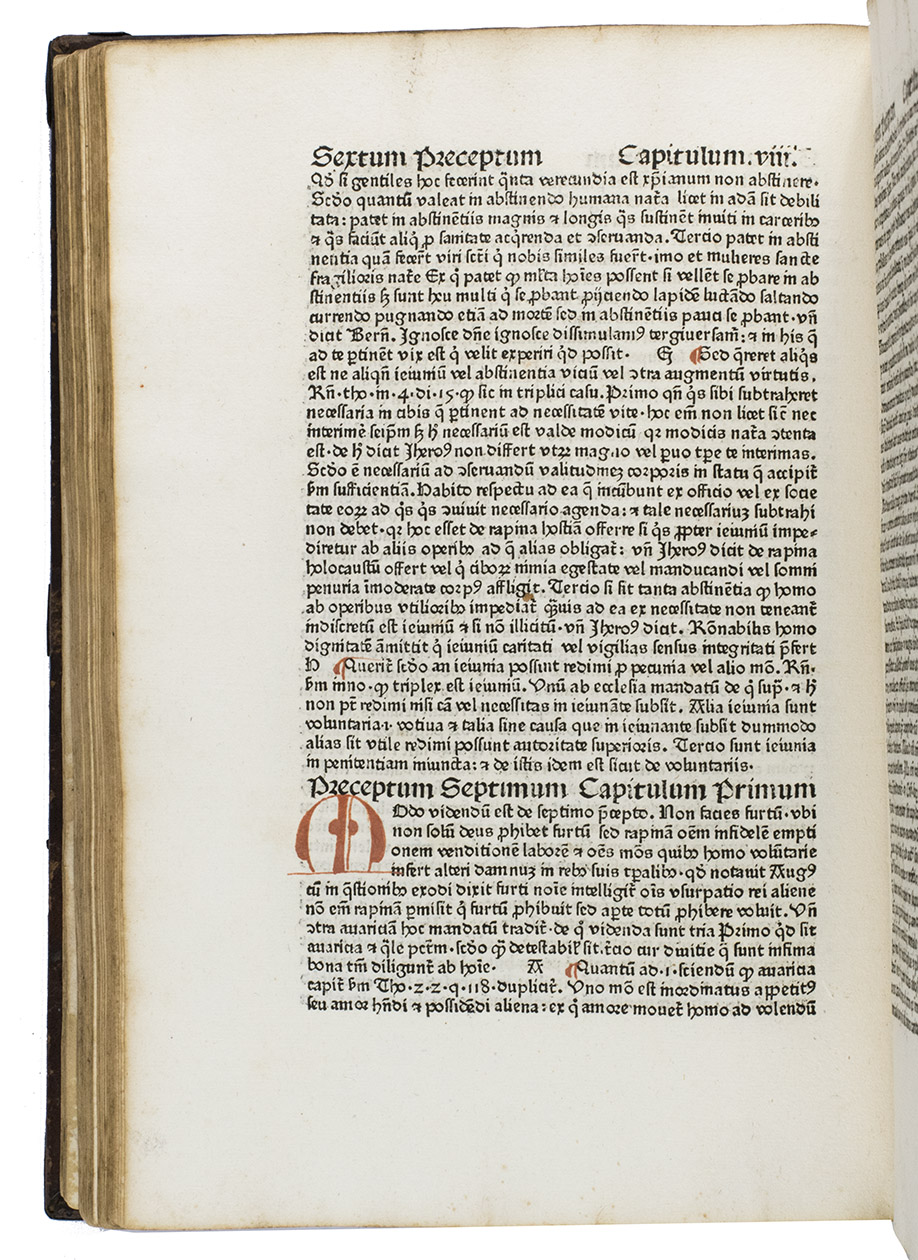 Sextum Preceptum Capitulum.viii.
Qđ si gentiles hoc fecerint q̄nta verecundia est xp̄ianum non abstinere.
Scđo quantū valeat in abstinendo humana nat̄a licet in adā sit debili
tata: patet in abstinētiis magnis ⁊ longis q̄s sustinēt inuiti in carceribꝰ
⁊ q̄s faciūt aliq̇ ꝓ sanitate acq̇renda et ↄseruanda. Tercio patet in absti
nentia quā fecer̄t viri sc̄ti q̇ nobis similes fuer̄t. imo et mulieres sancte
fragilioris nat̄e Ex q̇ patet ꝙ ml̄ta hoīes possent si vellēt se ꝓbare in ab
stinentiis sꝫ sunt heu multi q̇ se ꝓbant ꝓijciendo lapidē luctādo saltando
currendo pugnando etiā ad mortē sed in abstinētiis pauci se ꝓbant. vn̄
dicit Bern̄. Ignosce dn̄e ignosce dissimulamꝰ tergiuersam̄: ⁊ in his q̄
ad te ꝑtinēt vix est q̇ velit experiri qđ possit. G ¶Sed q̄reret aliq̇s
est ne aliqn̄ ieiuniū vel abstinentia viciū vel ↄtra augmentū virtutis.
Rn̄. tho. in. 4. di. 15. ꝙ sic in triplici casu. Primo qn̄ q̇s sibi subtraheret
necessaria in cibis q̄ ꝑtinent ad necessitatē vite. hoc em̄ non licet sic̄ nec
interimē seip̄m sꝫ h̄ necessariū est valde modicū qꝛ modicis nat̄a ↄtenta
est. de h̄ dicit Jheroꝰ non differt vtꝝ magno vel ꝑuo tꝑe te interimas.
Scđo ē necessariū ad ↄseruandū valitudinez corporis in statu q̄ accipit̄
ẜm sufficientiā. Habito respectu ad ea q̄ incūbunt ex officio vel ex socie
tate eoꝝ ad q̇s q̇s ↄuiuit necessario agenda: ⁊ tale necessariuꝫ subtrahi
non debet. qꝛ hoc esset de rapina hostiā offerre si q̇s ꝓpter ieiuniū impe-
diretur ab aliis operibꝰ ad q̄ alias obligat̄: vn̄ Jheroꝰ dicit de rapina
holocaustū offert vel q̇ ciboꝝ nimia egestate vel manducandi vel somni
penuria īmoderate corpꝰ affligit. Tercio si sit tanta abstinētia ꝙ homo
ab operibus vtilioribꝰ impediat̄ q̄uis ad ea ex necessitate non teneant̄
indiscretū est ieiuniū ⁊ si nō illicitū. vn̄ Jheroꝰ dicit. Rōnabilis homo
dignitatē āmittit q̇ ieiuniū caritati vel vigilias sensus integritati p̄fert
H ¶Querit̄ scđo an ieiunia possunt redimi ꝓ pecunia vel alio mō. Rn̄.
ẜm inno. ꝙ triplex est ieiuniū. Vnū ab ecclesia mandatū de q̇ sup̄. ⁊ h̄
non pt̄ redimi nisi cā vel necessitas in ieiunāte subsit. Alia ieiunia sunt
voluntaria.i. votiua ⁊ talia sine causa que in ieiunante subsit dummodo
alias sit vtile redimi possunt autoritate superioris. Tercio sunt ieiunia
in penitentiam iniuncta: ⁊ de istis idem est sicut de voluntariis.
Preceptum Septimum Capitulum Primum
MOdo videndū est de septimo p̄cepto. Non facies furtū. vbi
non solū deus ꝓhibet furtū sed rapinā oēm infidelē empti
onem venditionē laborē ⁊ oēs mōs quibꝰ homo volūtarie
infert alteri damnuꝫ in rebꝰ suis tꝑalibꝰ. qđ notauit Augꝰ
tū in q̄stionibꝰ exodi dixit furti noīe intelligit̄ oīs vsurpatio rei aliene
nō em̄ rapinā ꝑmisit q̇ furtū ꝓhibuit sed aꝑte totū ꝓhibere voluit. Vn̄
ↄtra auariciā hoc mandatū tradit̄. de q̇ videnda sunt tria Primo qđ sit
auaricia ⁊ q̄le pctm̄. scđo ꝙ̄ detestabil̄ sit. t̄cio cur diuitie q̄ sunt infima
bona tm̄ diligunt̄ ab hoīe. A ¶Quantū ad .1. sciendū ꝙ auaricia
capit̄ ẜm Tho. 2. 2. q. 118. duplicit̄. Vno mō est inordinatus appetitꝰ
seu amor hn̄di ⁊ possidēdi aliena: ex q̇ amore mouet̄ homo ad volendū